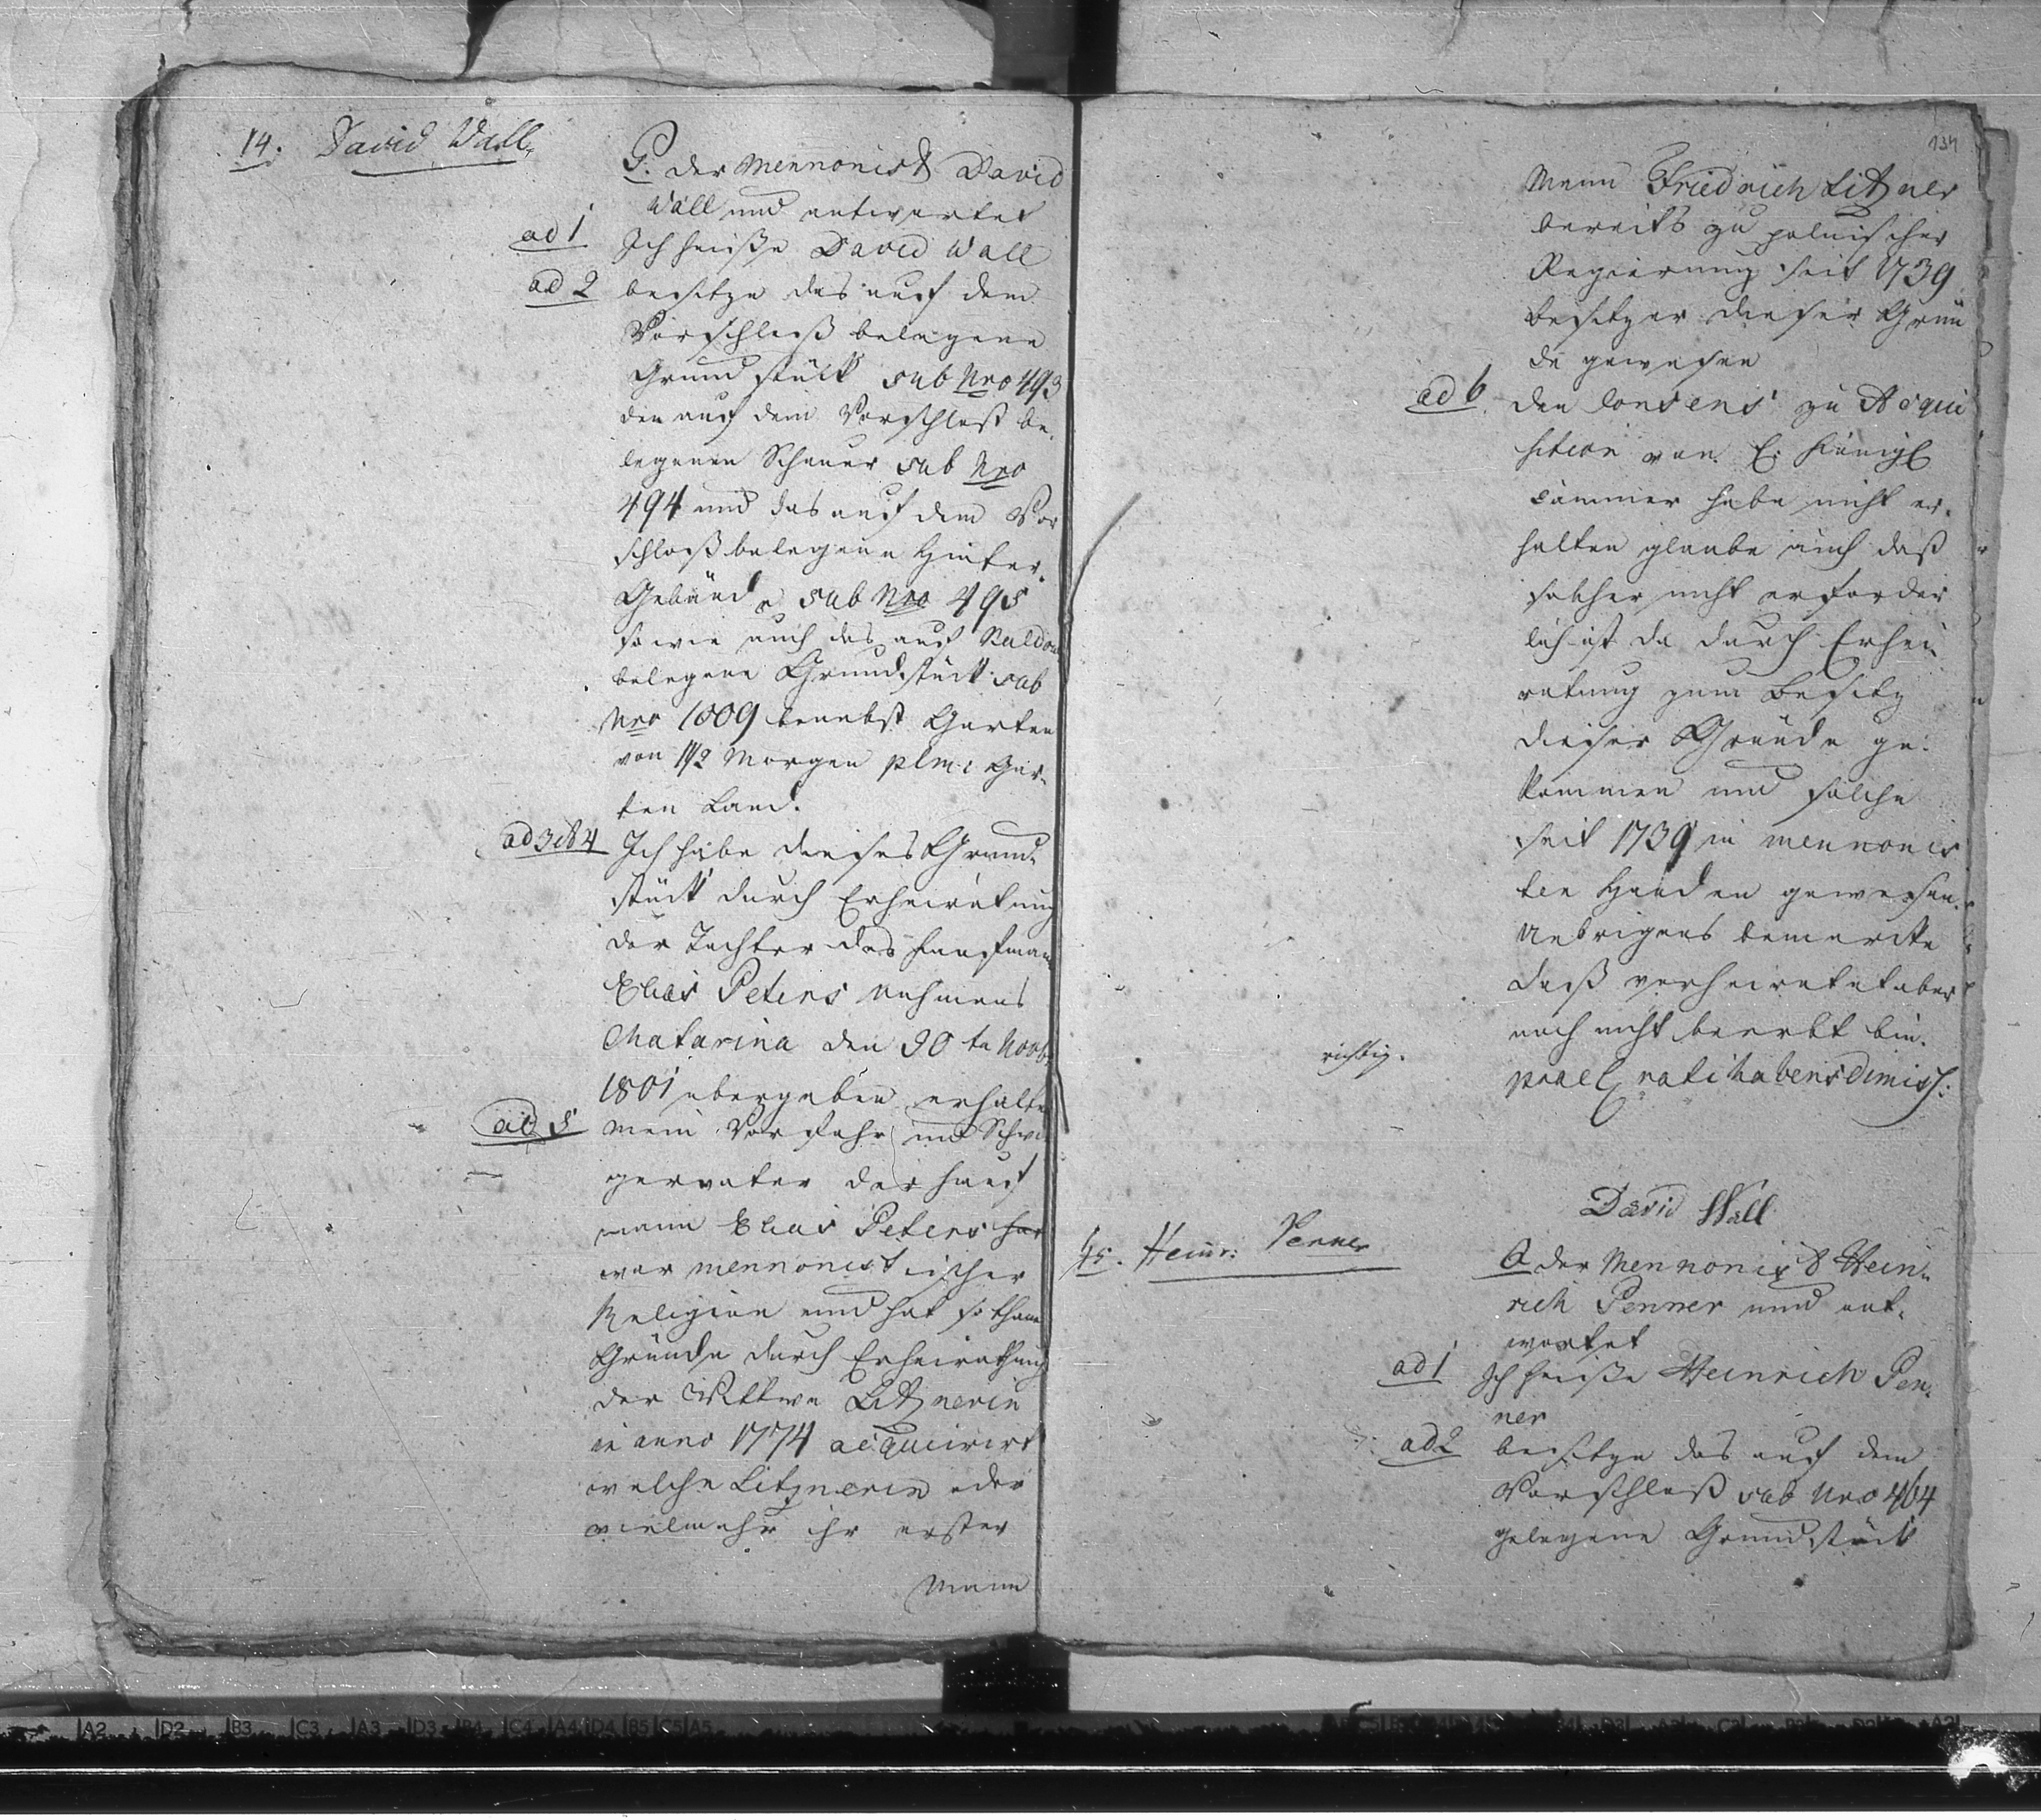 14. David Wall.
P. der Mennonist David
Wall und antwortet
ad 1 Ich heiße David Wall
ad 2 besitze das auf dem
Vorschloß belegene
Grundstück sub Nro 493
den auf dem Vorschloß be-
legenen Schauer sub Nro
494 und das auf dem Vor
schloß belegene Hinter-
Gebäude sub Nro 495
so wie auch das auf
belegene Grundstück sub
Nro 1009 benebst Garten
von 1 1/2 Morgen plmi Gar-
ten Land.
ad 3 et 4 Ich habe dieses Grund-
stück durch Erheiratung
der Tochter des Kaufmann
Elias Peters nahmens
Catarina den 30 te Novb
1801 übergeben erhalten
ad 5 mein Vorfahr und Schwi
gervater der Kauf
mann Elias Peters hat
war mennonistischer
Religion und hat sothane
Gründe durch Erheirathung
der Wittwe Litznerin
in anno 1774 acquirirt
welche Litznerin oder
vielmehr ihr erster
Mann
134
Mann Friedrich Litzner
bereits zu polnischer
Regierung seit 1739
Besitzer dieser Grün
de gewesen
ad 6 den Consens zu Acqui
sition von E. Königl
Cammer habe nicht er-
halten glaube auch daß
solcher nicht erforder
lich ist da durch Erhei-
ratung zum Besitz
dieser Gründe ge-
kommen und solche
seit 1739 in mennonis
ten Händen gewesen.
Uebrigens bemerke
daß verheiratet aber
noch nicht beerbt bin.
richtig.
prael ratihabens dimiss:
David Wall
15. Heinr: Penner
A der Mennonist Hein-
rich Penner und ant-
wortet
ad 1 Ich heiße Heinrich Pen-
ner
ad 2 besitze das auf dem
Vorschloß sub Nro 464
gelegene Grundstück